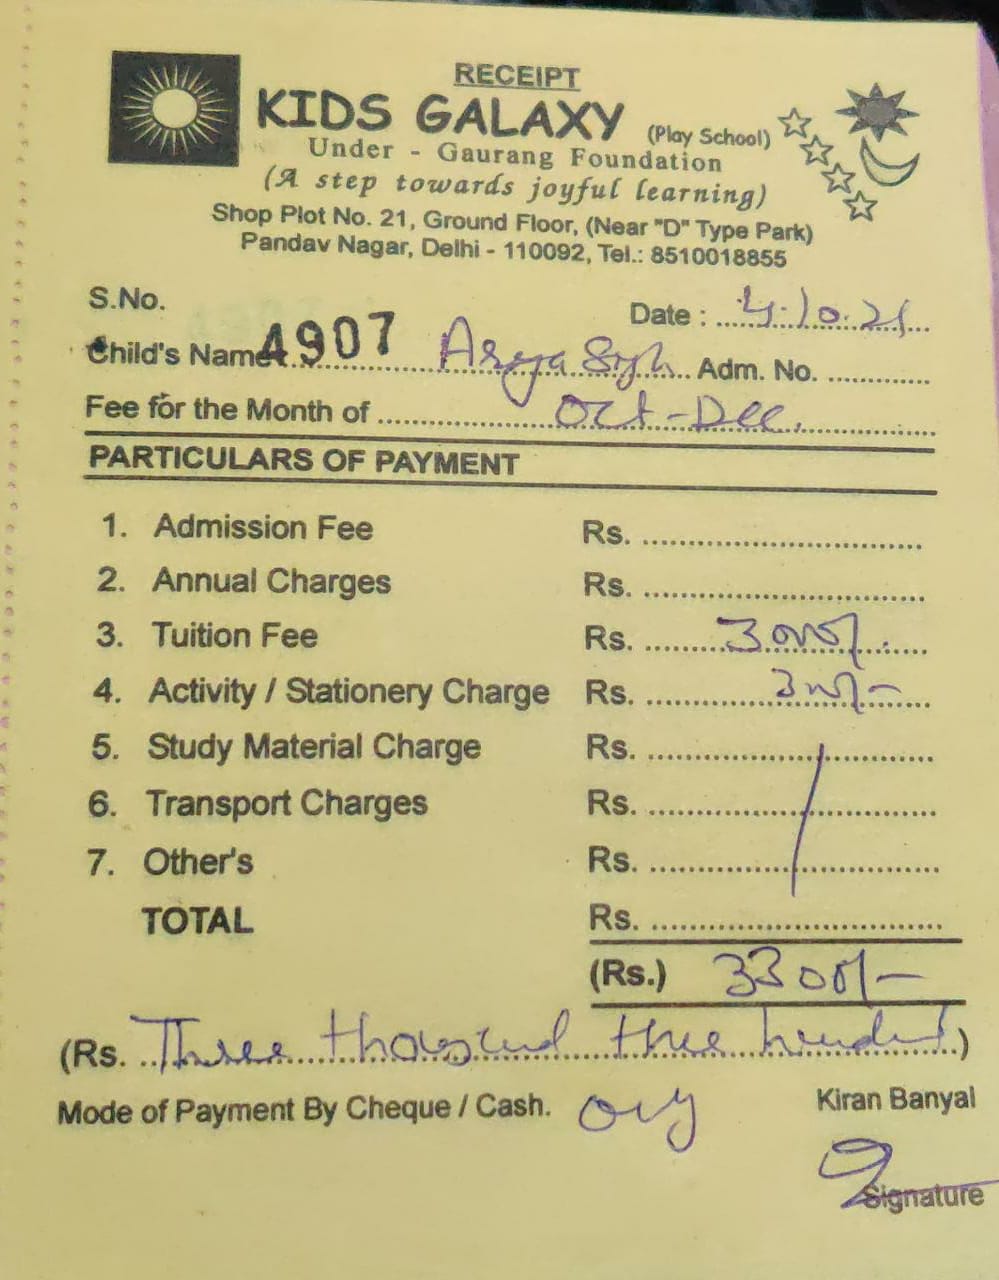 RECEIPT
KIDS GALAXY (Play School)
Under - Gaurang Foundation
(A step towards joyful learning)
Shop Plot No. 21, Ground Floor, (Near "D" Type Park)
Pandav Nagar, Delhi - 110092, Tel.: 8510018855
S.No.
Date : 4.10.21
Child's Name 4907 Arya Singh Adm. No.
Fee for the Month of Oct-Dec.
PARTICULARS OF PAYMENT
1. Admission Fee Rs.
2. Annual Charges Rs.
3. Tuition Fee Rs. 3000/-
4. Activity / Stationery Charge Rs. 300/-
5. Study Material Charge Rs.
6. Transport Charges Rs.
7. Other's Rs.
TOTAL Rs.
(Rs.) 3300/-
(Rs. Three thousand three hundred)
Mode of Payment By Cheque / Cash. only
Kiran Banyal
Signature